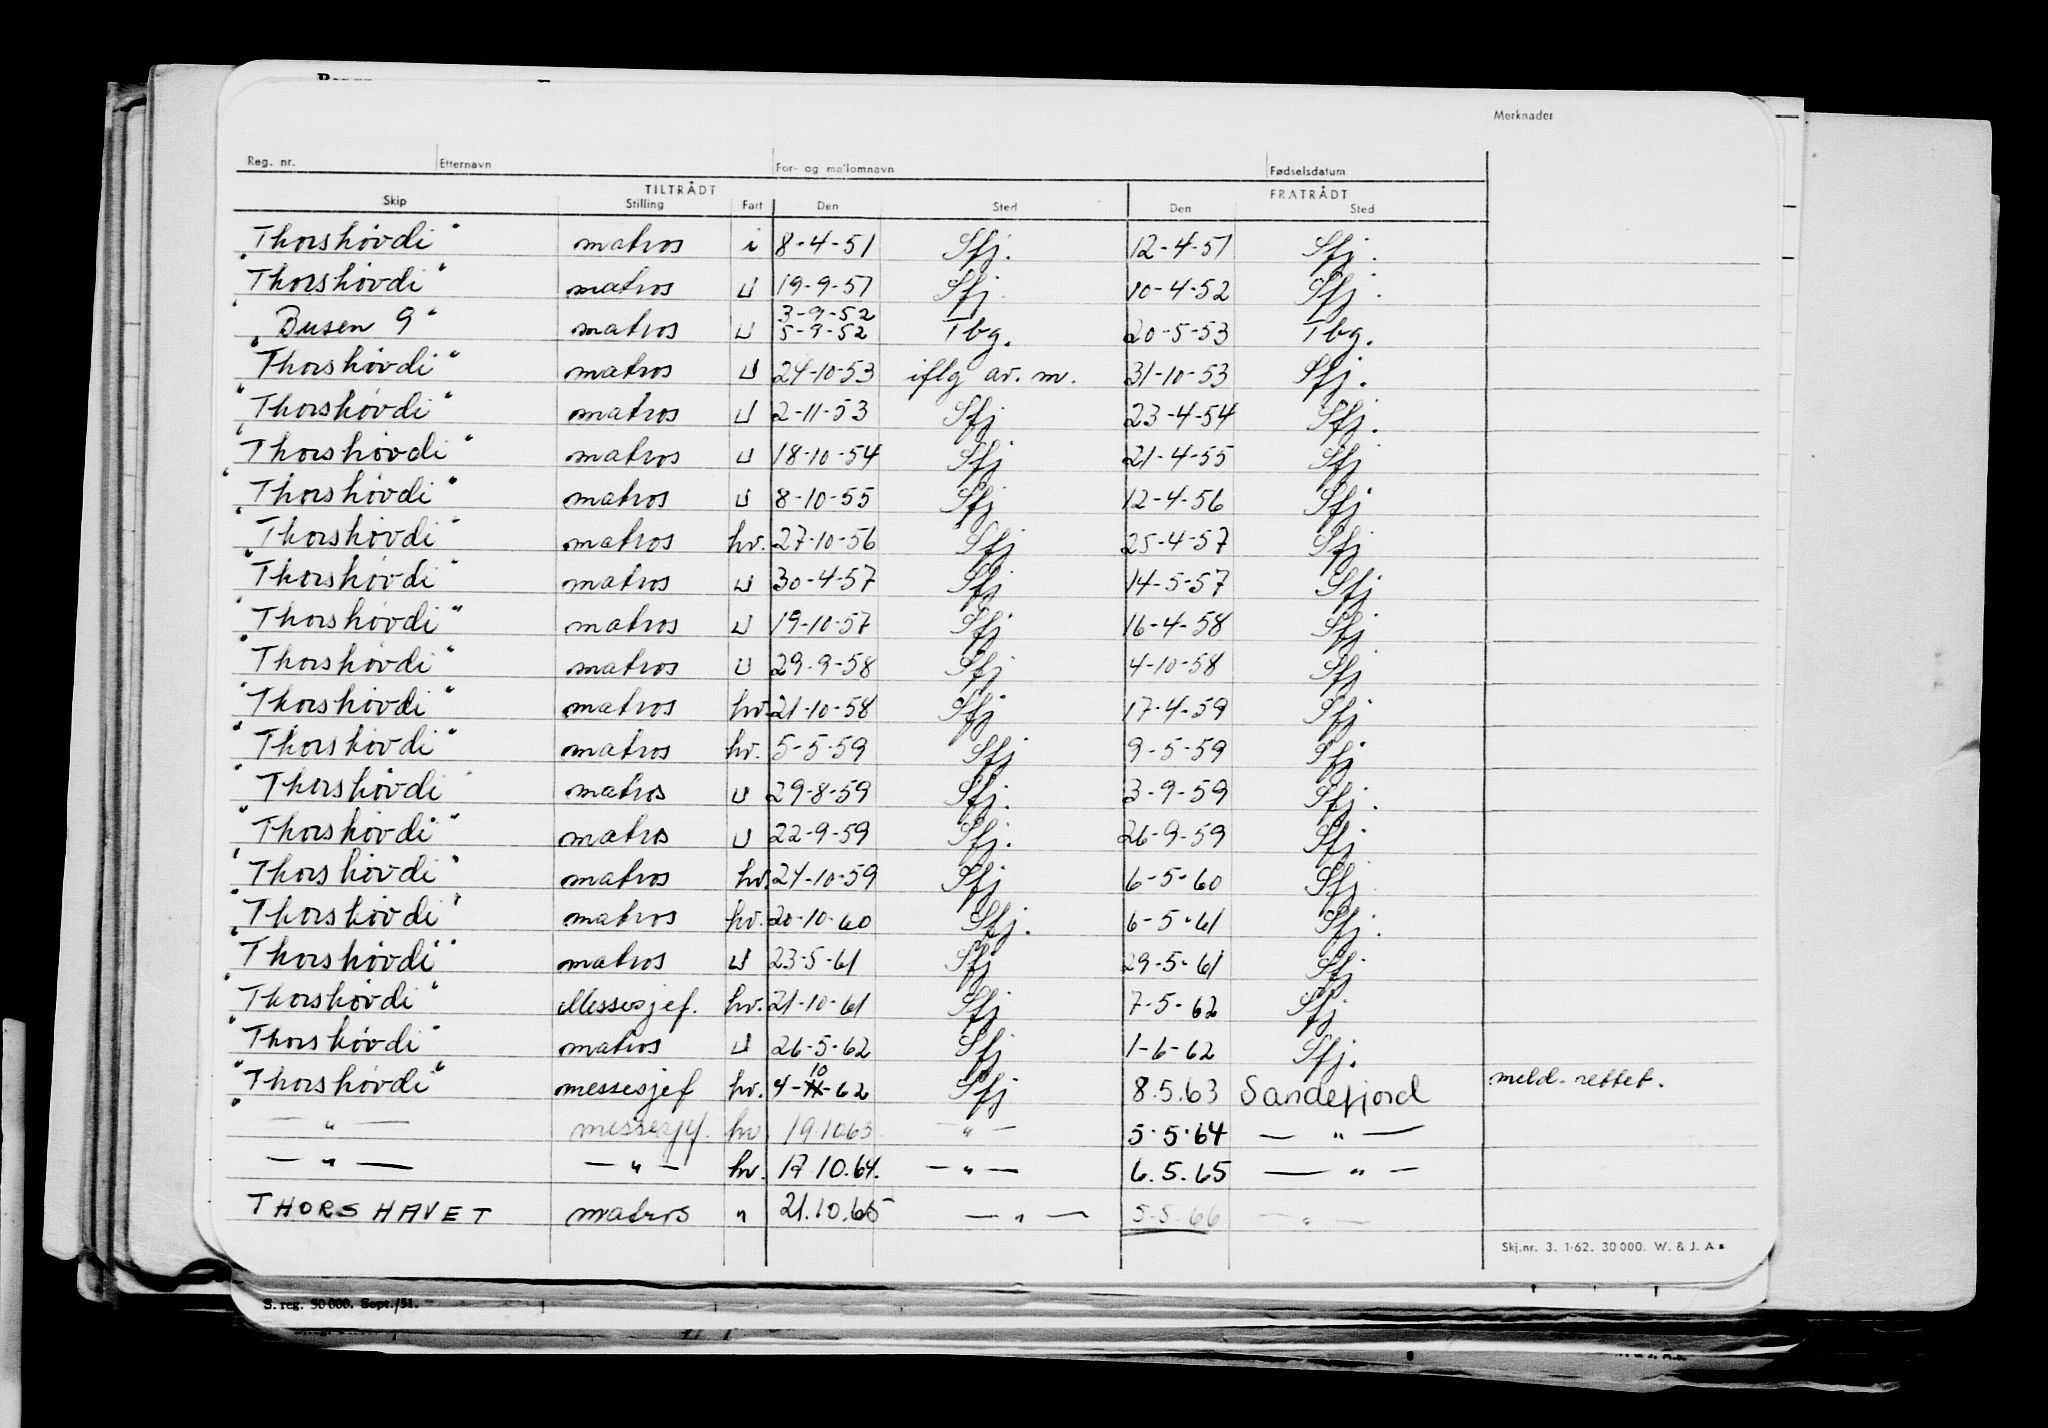 Merknader
Reg. nr. Etternavn For- og mellomnavn Fødselsdatum
TILTRÅDT FRATRÅDT
Skip Stilling Fart Den Sted Den Sted
"Thorshøvdi" matros i 8-4-51 Sfj. 12-4-51 Sfj.
"Thorshøvdi" matros u 19-9-51 Sfj. 10-4-52 Sfj.
3-9-52
"Busen 9" matros u 5-9-52 Tbg. 20-5-53 Tbg.
"Thorshøvdi" matros u 24-10-53 iflg av. m. 31-10-53 Sfj.
"Thorshøvdi" matros u 2-11-53 Sfj 23-4-54 Sfj.
"Thorshøvdi" matros u 18-10-54 Sfj 21-4-55 Sfj
"Thorshøvdi" matros u 8-10-55 Sfj 12-4-56 Sfj
"Thorshøvdi" matros hv. 27-10-56 Sfj 25-4-57 Sfj
"Thorshøvdi" matros u 30-4-57 Sfj 14-5-57 Sfj
"Thorshøvdi" matros u 19-10-57 Sfj 16-4-58 Sfj
"Thorshøvdi" matros u 29-9-58 Sfj 4-10-58 Sfj
"Thorshøvdi" matros hv. 21-10-58 Sfj 17-4-59 Sfj
"Thorshøvdi" matros hv. 5-5-59 Sfj 9-5-59 Sfj
"Thorshøvdi" matros u 29-8-59 Sfj. 3-9-59 Sfj.
"Thorshøvdi" matros u 22-9-59 Sfj. 26-9-59 Sfj
"Thorshøvdi" matros hv. 24-10-59 Sfj 6-5-60 Sfj
"Thorshøvdi" matros hv. 20-10-60 Sfj. 6-5-61 Sfj.
"Thorshøvdi" matros u 23-5-61 Sfj 29-5-61 Sfj
"Thorshøvdi" Messesjef. hv. 21-10-61 Sfj 7-5-62 Sfj
"Thorshøvdi" matros u 26-5-62 Sfj 1-6-62 Sfj.
"Thorshøvdi" messesjef hv. 4-10-62 Sfj 8.5.63 Sandefjord meld. rettet.
— " — messesjef. hv 19.10 63 — " — 5.5.64 — " —
— " — — " — hv. 17.10.64. — " — 6.5.65 — " —
THORSHAVET matros " 21.10.65 — " — 5.5.66 — " —
Skj.nr. 3. 1-62. 30 000. W. & J. A
S. reg. 50 000. Sept./51.